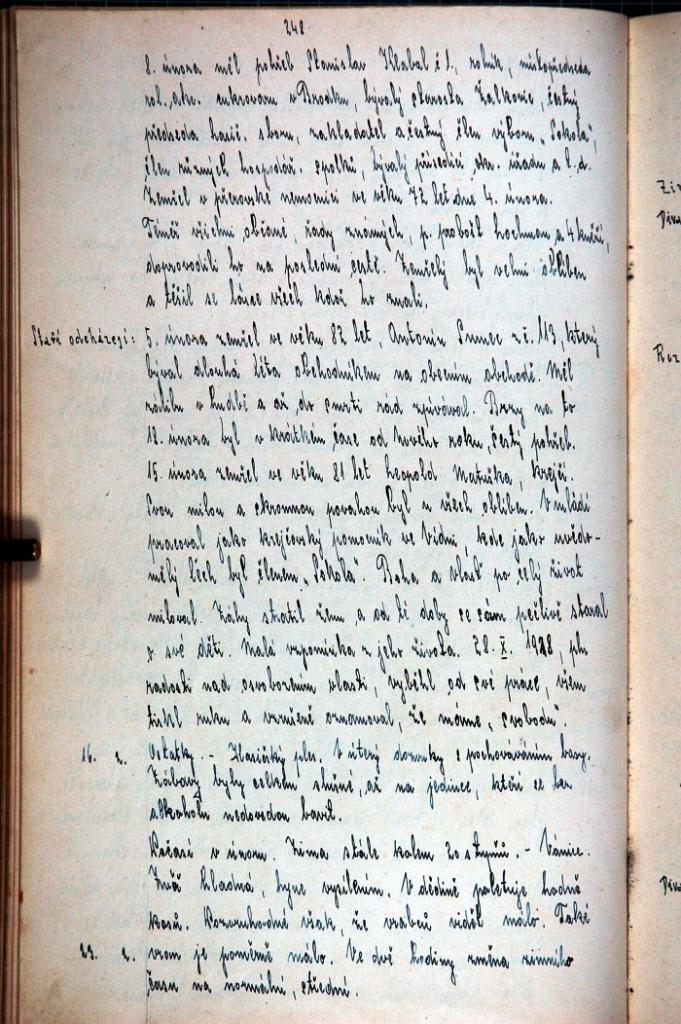 248
8. února měl pohřeb Stanislav Hlabal č 1., rolník, místopředseda
rol. akc. cukrovaru v Brodku, bývalý starosta Žalkovic, čestný
předseda hasič. sboru, zakladatel a čestný člen výboru „Sokola",
člen různých hospodář. spolků, bývalý přísedící okr. úřadu a t. d.
Zemřel v přerovské nemocnici ve věku 72 let dne 4. února.
Téměř všichni občané, řady známých, p. probošt Lochman a 4 kněží,
doprovodili ho na poslední cestě. Zemřelý byl velmi oblíben
a těšil se lásce všech kdož ho znali.
Staří odcházejí: 5. února zemřel ve věku 82 let, Antonín Pumec z č. 113, který
býval dlouhá léta obchodníkem na obecním obchodě. Měl
zálibu v hudbě a až do smrti rád zpívával. Brzy na to
18. února byl v krátkém čase od Nového roku, šestý pohřeb.
15. února zemřel ve věku 81 let Leopold Matuška, krejčí.
Svou milou a skromnou povahou byl u všech oblíben. V mládí
pracoval jako krejčovský pomocník ve Vídni, kde jako uvědo-
mělý Čech byl členem „Sokola". Boha a vlast po celý život
miloval. Záhy ztratil ženu a od té doby se sám pečlivě staral
o své děti. Malá vzpomínka z jeho života. 28. X. 1918, pln
radosti nad osvobozením vlasti, vyběhl od své práce, všem
tiskl ruku a vzrušeně oznamoval, že máme „svobodu".
16. 2. Ostatky. - Hasičský ples. V úterý dozvuky s pochováváním basy.
Zábavy byly celkem slušné, až na jedince, kteří se bez
alkoholu nedovedou bavit.
Počasí v únoru. Zima stále kolem 20 stupňů. - Vánice.
Zvěř hladná, hyne vysílením. V dědině poletuje hodně
kosů. Pozoruhodné však, že vrabců vidět málo. Také
23. 2. vran je poměrně málo. Ve dvě hodiny změna zimního
času na normální, střední.